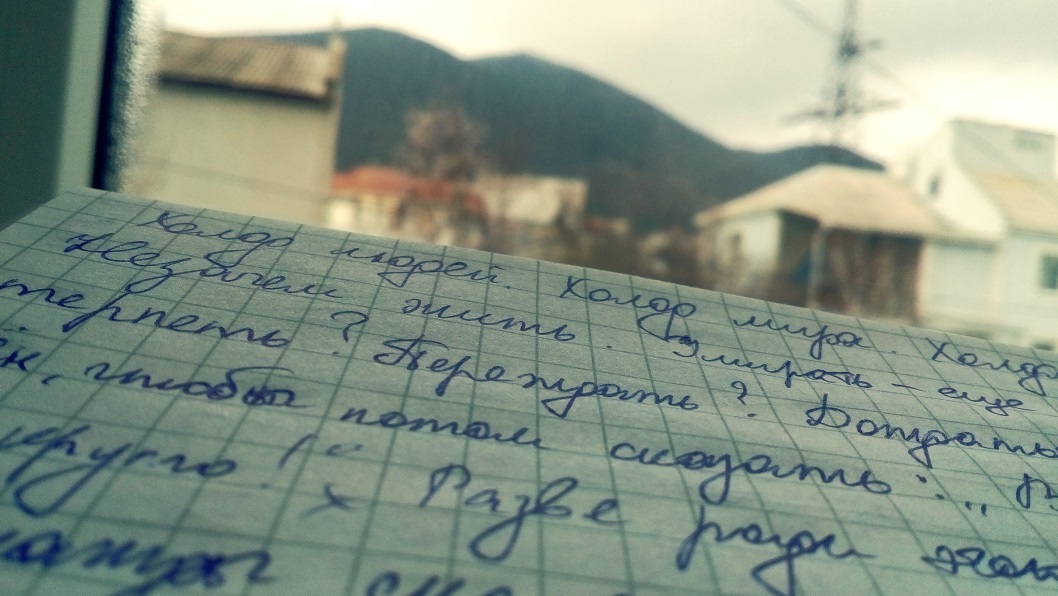 Холод людей. Холод мира. Холод
Незачем жить. Умирать – еще
терпеть? Переждать? Дождать
чтобы потом сказать: „
другого!“ Разве ради этого